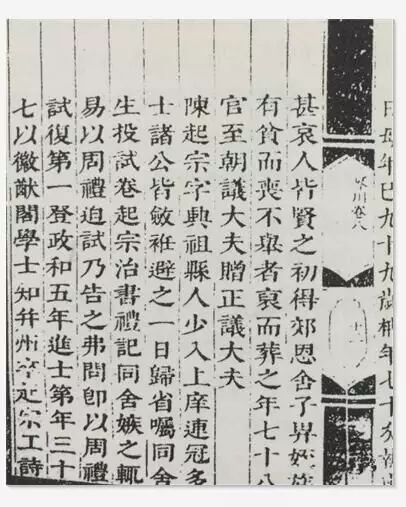 母年已九十九歲植年七十
川卷八
甚哀人皆賢之初得郊恩舍子畀姪族
有貧而喪不舉者裒而葬之年七十八
官至朝議大夫贈正議大夫
陳起宗字興祖縣人少入上庠連冠多
士諸公皆斂袵避之一日歸省囑同舍
生投試卷起宗治書禮記同舍嫉之輒
易以周禮迫試乃告之弗問卽以周禮
試復第一登政和五年進士第年三十
七以徽猷閣學士知幷州卒起宗工詩